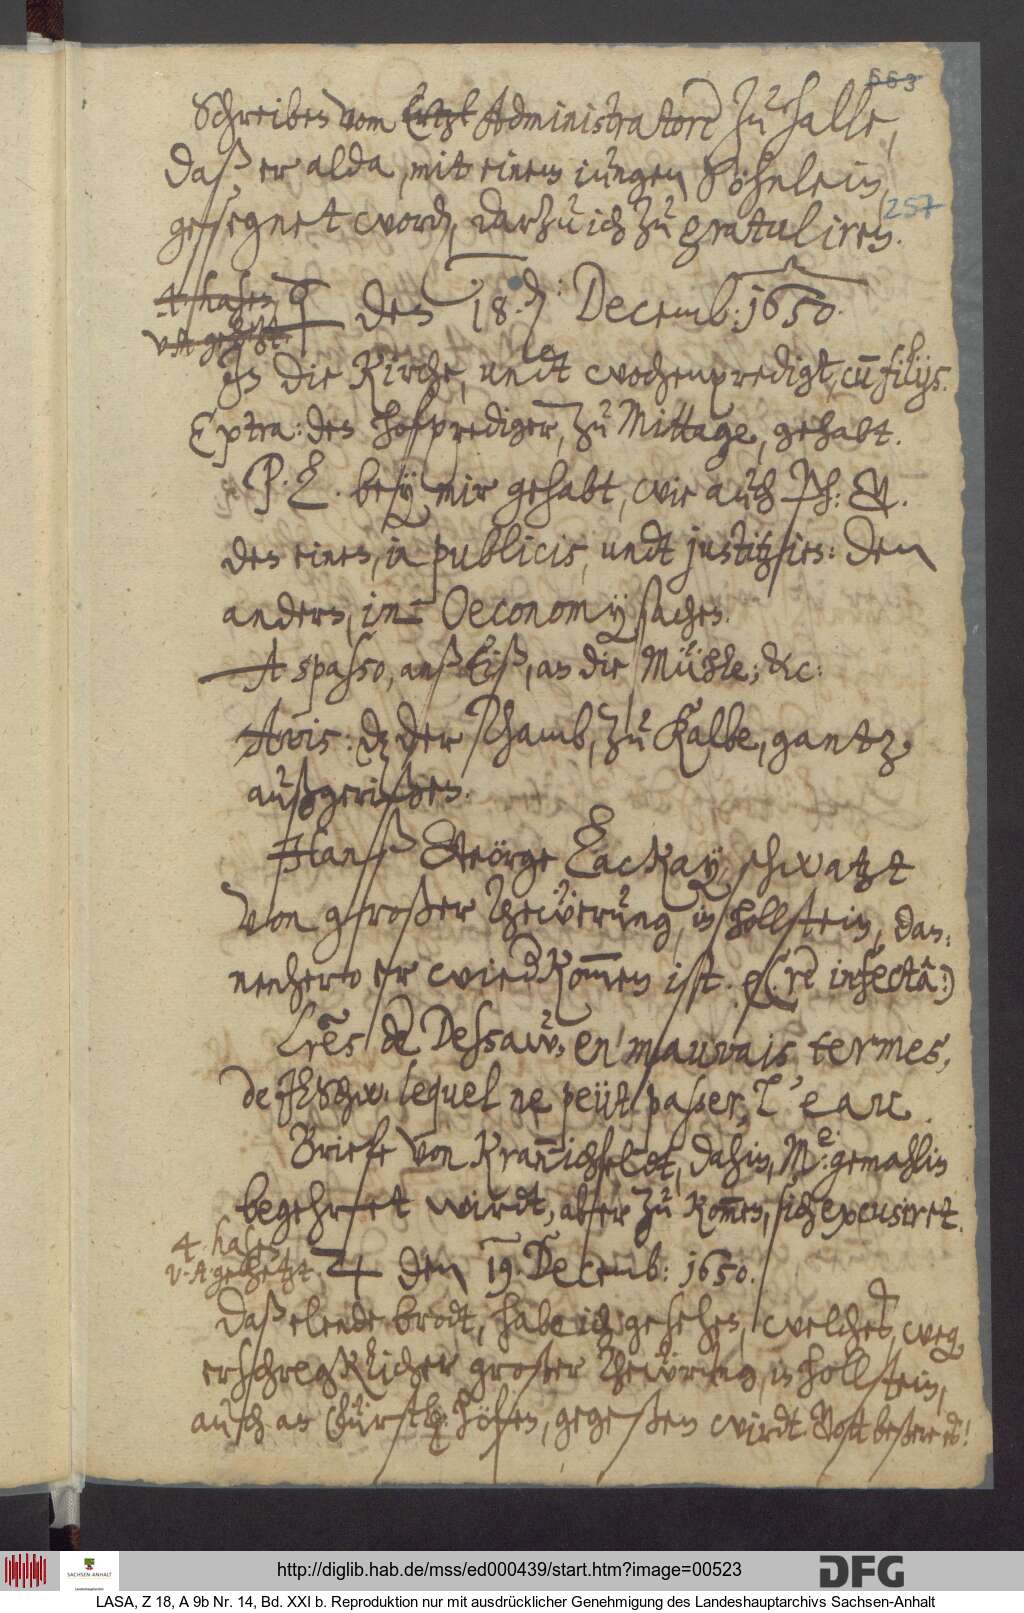 663
Schreiben vom Ertzt Administratore zu Halle,
daß er alda, mit einem iungen Söhnlein,
257
gesegnet word, darzu ich zu gratuliren.
4 hasen
v. A. gehetzt.
☿ den 18. Decemb: 1650.
Jn die Kirche, undt wochenpredigt, cu filijs.
Extra: den hofprediger, zu Mittage, gehabt.
P. L. bey mir gehabt, wie auch Ph: G.
den einen, in publicis, undt justitzsien: den
andern, in Oeconomy sachen.
A spasso, anß Eiß, an die Mühle; &c:
Avis: dz der Thamb, zu Kalbe, gantz
außgerißen.
Hanß George Hackay, schwatzt
von großer Theüerung, in hollstein, dan¬
nenhero er wied kommen ist. (: re infectâ:)
Lres de Dessaw, en mauvais termes,
de lequel ne peüt passer, l'eau.
Briefe von Kranichfeldt, dahin, Me: gemahlin
begehret wirdt, aber zu kommen, sich excusiret.
4 hasen
v. A. gehetzt
♃ den 19. Decemb: 1650.
Daß elende brodt, habe ich gesehen, welches, weg
erschrecklicher großer Theürung, in hollstein,
auch an Fürstl: höfen, gegeßen wirdt. Gott beßere es!
http://diglib.hab.de/mss/ed000439/start.htm?image=00523
SACHSEN-ANHALT
DFG
LASA, Z 18, A 9b Nr. 14, Bd. XXI b. Reproduktion nur mit ausdrücklicher Genehmigung des Landeshauptarchivs Sachsen-Anhalt